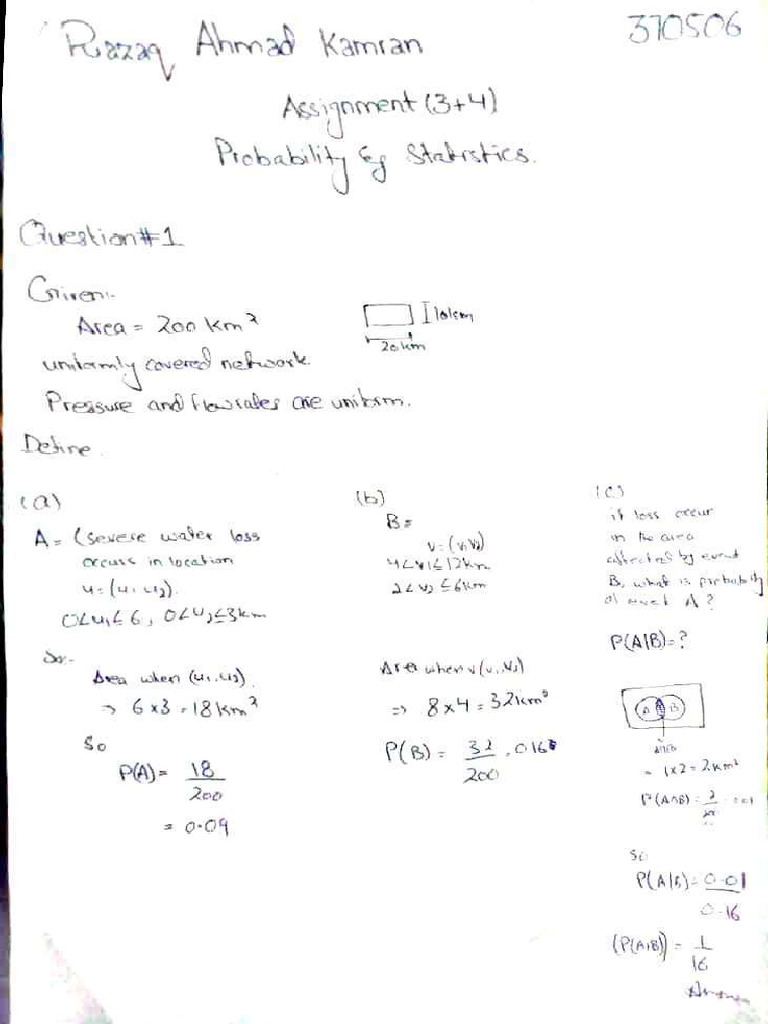 Razaq Ahmad Kamran
370506
Assignment (3+4)
Probability & Statistics.
Question#1
Given:-
Area = 200 km²
10km
20km
uniformly covered network.
Pressure and flowrates are uniform.
Define
(a)
A = (severe water loss
occurs in location
u = (u₁, u₂).
0<u₁≤6, 0<u₂≤3km
So:-
Area when (u₁, u₂).
→ 6x3 = 18km²
So
P(A) = 18
200
= 0.09
(b)
B =
v = (v₁, v₂)
4<v₁≤12km
2<v₂≤6km
Area when v(v₁, v₂)
=> 8x4 = 32km²
P(B) = 32
200
(c)
if loss occur
in the area
affected by event
B, what is probability
of event A?
P(A|B) = ?
A B
A∩B
= 1x2 = 2km²
P(A∩B) = 2
So
P(A|B) = 0.01
0.16
(P(A|B)) = 1
16